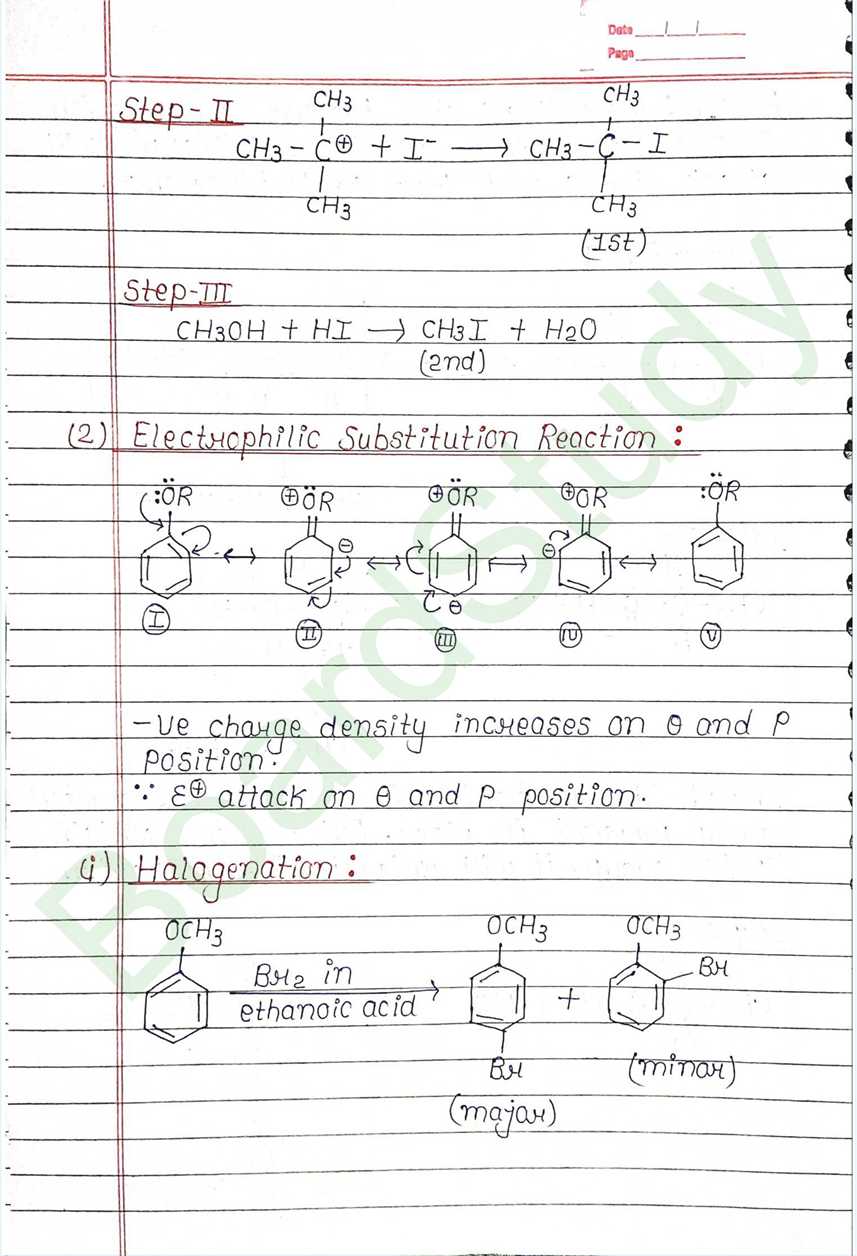 Date
Page
Step-II
CH3 CH3
CH3 - C⊕ + I⁻ ⟶ CH3 - C - I
CH3 CH3
(1st)
Step-III
CH3OH + HI ⟶ CH3I + H2O
(2nd)
(2) Electrophilic Substitution Reaction :
:ÖR ⊕ÖR ⊕ÖR ⊕OR :ÖR
⊖ ⟷ ⟷ ⟷ ⊖ ⟷
⊖
I II III IV V
-Ve charge density increases on O and P
Position.
∵ E⊕ attack on O and P position.
(i) Halogenation :
OCH3 OCH3 OCH3
Br2 in Br
ethanoic acid +
Br (minor)
(major)
BoardStudy